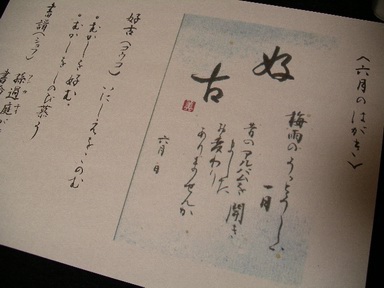 〈六月のはがき〉
好
古
梅雨のうっとうしい
一日
昔のアルバムを開き
ました
お変わり
ありませんか
六月 日
好古(コウコ) いにしえを、このむ
•むかしを好む。
•むかしをしのび慕う
書譜(ショフ)
孫過庭